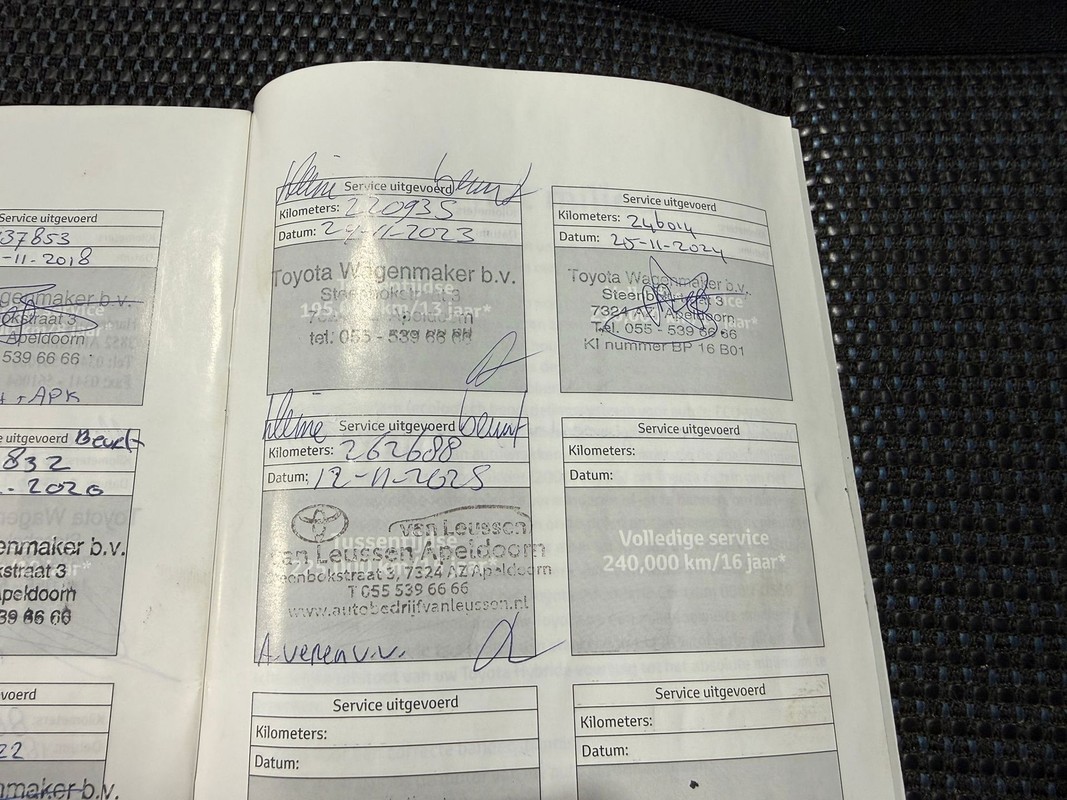 Service uitgevoerd
37853
-11-2018
genmaker b.v.
kstraat 3
Apeldoorn
539 66 66
+ APK
e uitgevoerd Beurt
832
2020
enmaker b.v.
kstraat 3
Apeldoorn
39 66 66
voerd
22
nmaker b.v.
kleine beurt
Service uitgevoerd
Kilometers: 220935
Datum: 29-11-2023
Toyota Wagenmaker b.v.
Tussentijdse
195.000 km/13 jaar*
Apeldoorn
tel: 055 - 539 66 66
Service uitgevoerd
Kilometers: 246014
Datum: 25-11-2024
Toyota Wagenmaker b.v.
Steenbokstraat 3
7324 AZ Apeldoorn
Tel. 055 - 539 66 66
KI nummer BP 16 B01
kleine beurt
Service uitgevoerd
Kilometers: 262688
Datum: 12-11-2025
van Leussen
Tussentijdse
van Leussen Apeldoorn
eenbokstraat 3, 7324 AZ Apeldoorn
T 055 539 66 66
www.autobedrijfvanleussen.nl
A veren v.v.
Service uitgevoerd
Kilometers:
Datum:
Volledige service
240,000 km/16 jaar*
Service uitgevoerd
Kilometers:
Datum:
Service uitgevoerd
Kilometers:
Datum: